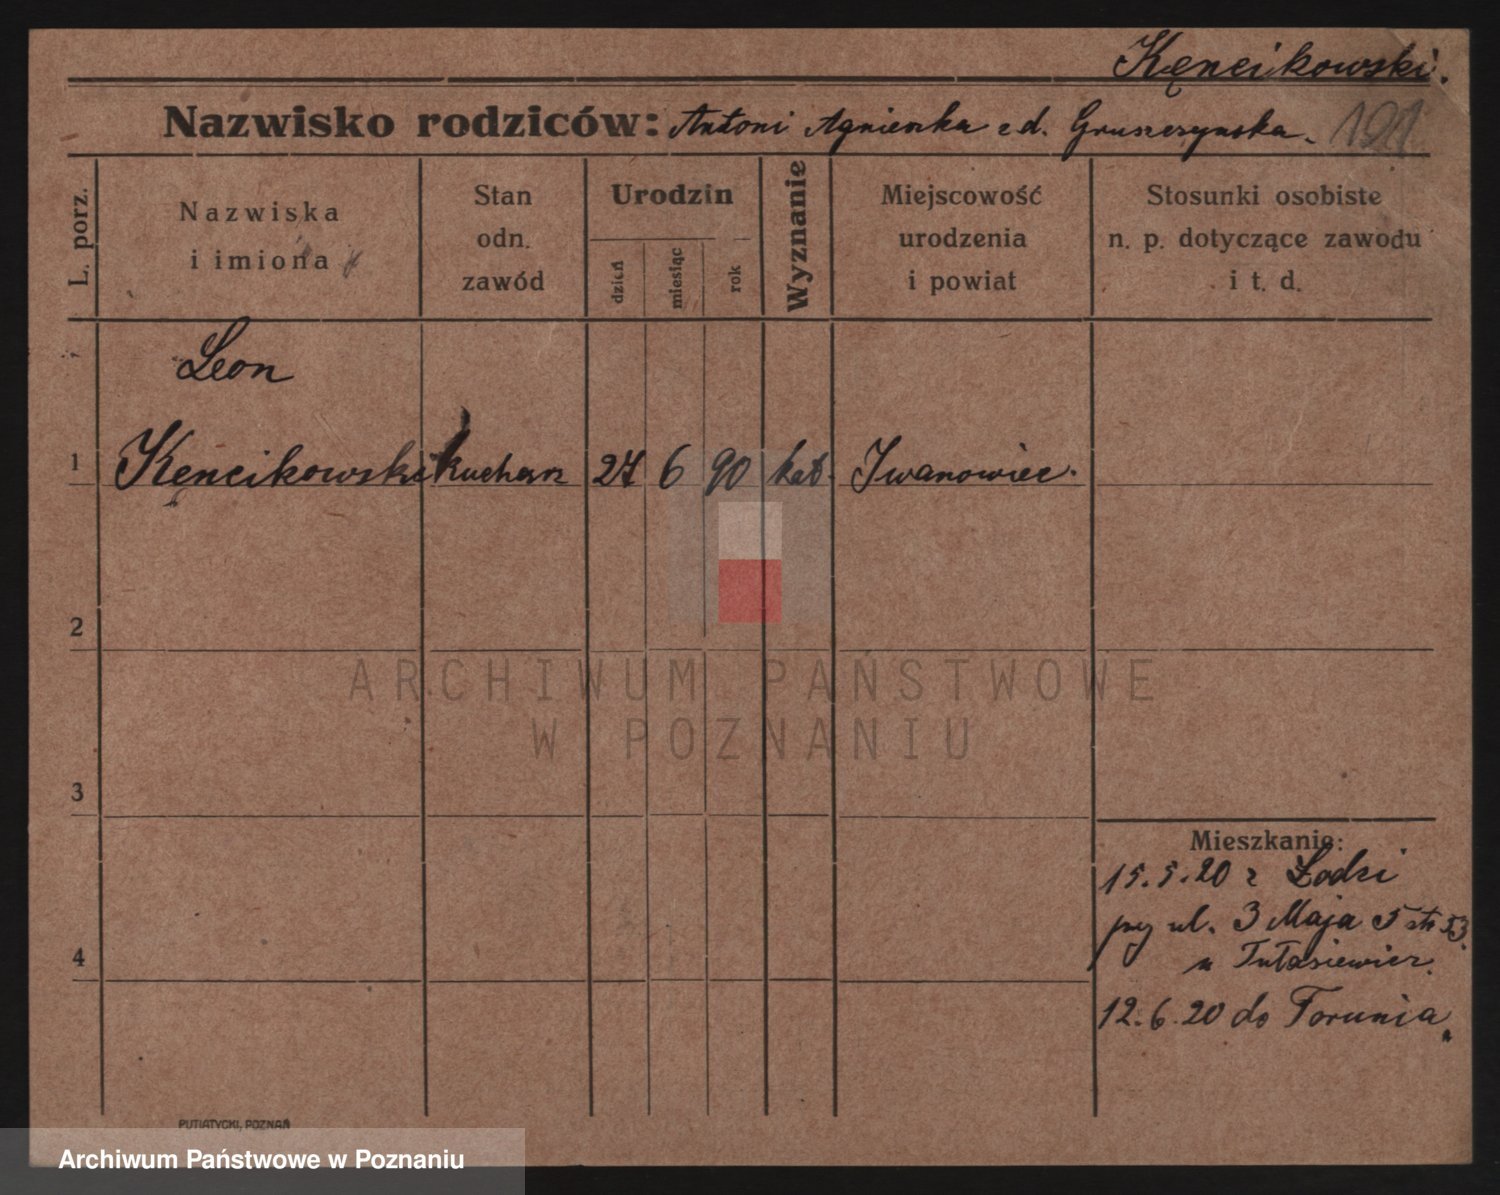 Kęncikowski.
Nazwisko rodziców: Antoni Agnieszka z d. Gruszczynska.
191
L. porz.
Nazwiska
i imiona
Stan
odn.
zawód
Urodzin
dzień
miesiąc
rok
Wyznanie
Miejscowość
urodzenia
i powiat
Stosunki osobiste
n. p. dotyczące zawodu
i t. d.
Leon
1 Kęncikowski kucharz 27 6 90 kat. Iwanowiec.
2
ARCHIWUM PAŃSTWOWE
W POZNANIU
3
4
Mieszkanie:
15.5.20 z Łodzi
przy ul. 3 Maja 5 53.
u
12.6.20 do Torunia
PUTIATYCKI, POZNAŃ
Archiwum Państwowe w Poznaniu